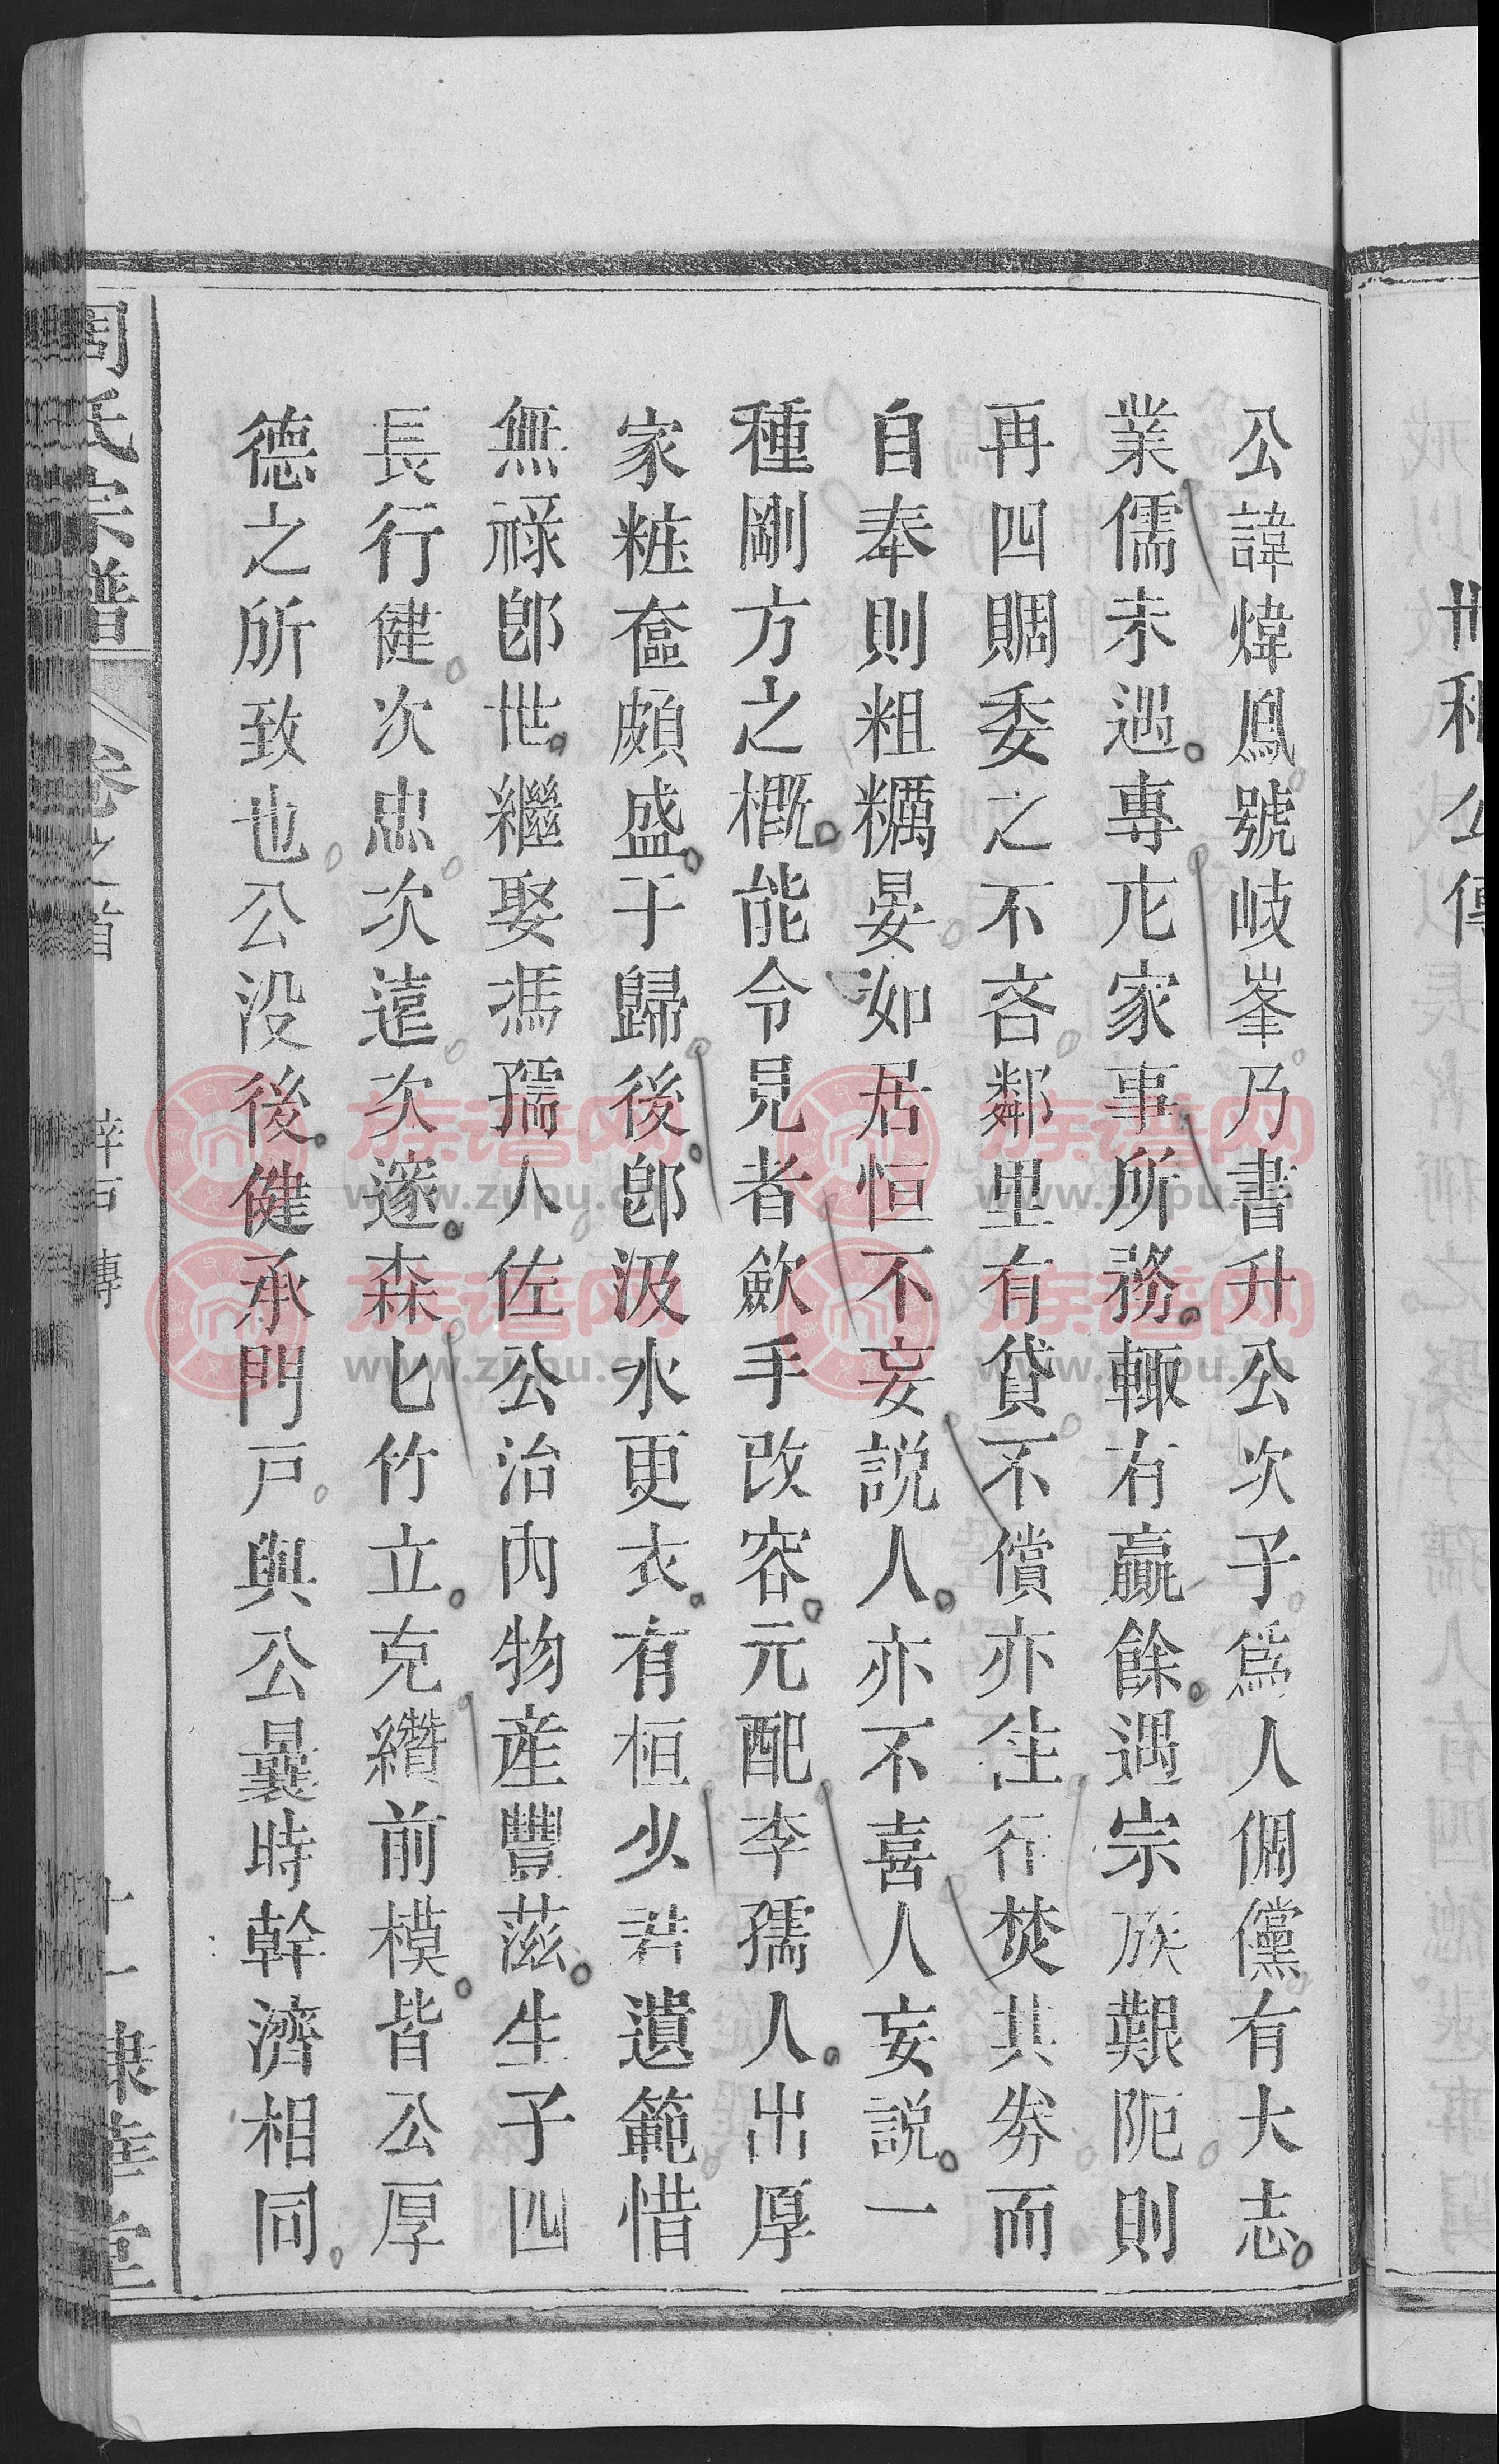 公諱煒鳳號岐峯乃書升公次子爲人倜儻有大志
業儒未遇專尤家事所務輙有贏餘遇宗族艱阨則
再四賙委之不吝鄰里有貸不償亦往行焚其券而
自奉則粗糲晏如居恒不妄説人亦不喜人妄説一
種剛方之概能令見者歛手改容元配李孺人出厚
家粧奩頗盛于歸後卽汲水更衣有桓少君遺範惜
無祿卽世繼娶馮孺人佐公治内物産豐滋生子四
長行健次忠次遠次邃森匕竹立克纘前模皆公厚
德之所致也公没後健承門戸與公曩時幹濟相同
周氏宗譜
卷之首
十一
棣華堂
公傳
族谱网
www.zupu.cn
族谱网
www.zupu.cn
族谱网
www.zupu.cn
族谱网
www.zupu.cn